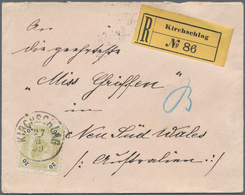 R
Kirchschlag
№ 86
An
die geehrteste
Miss Griffen
in
Neu Süd Wales
/: Australien :/
KIRCHSCHLAG
27